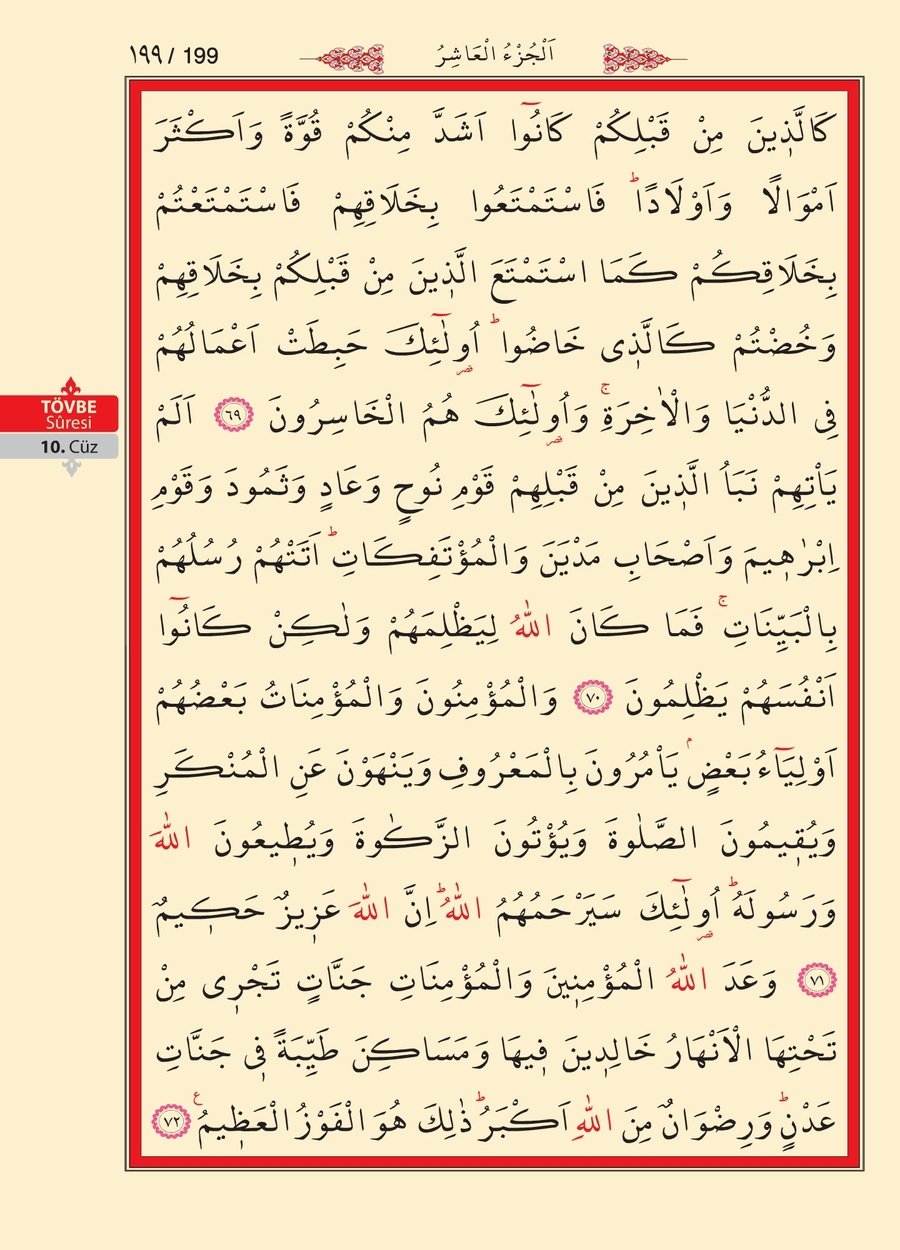 ١٩٩ / 199
اَلْجُزْءُ الْعَاشِرُ
كَالَّذ۪ينَ مِنْ قَبْلِكُمْ كَانُٓوا اَشَدَّ مِنْكُمْ قُوَّةً وَاَكْثَرَ
اَمْوَالًا وَاَوْلَادًاۜ فَاسْتَمْتَعُوا بِخَلَاقِهِمْ فَاسْتَمْتَعْتُمْ
بِخَلَاقِكُمْ كَمَا اسْتَمْتَعَ الَّذ۪ينَ مِنْ قَبْلِكُمْ بِخَلَاقِهِمْ
وَخُضْتُمْ كَالَّذ۪ى خَاضُواۜ اُو۬لٰٓئِكَ حَبِطَتْ اَعْمَالُهُمْ
فِى الدُّنْيَا وَالْاٰخِرَةِۚ وَاُو۬لٰٓئِكَ هُمُ الْخَاسِرُونَ ﴿٦٩﴾ اَلَمْ
يَأْتِهِمْ نَبَاُ الَّذ۪ينَ مِنْ قَبْلِهِمْ قَوْمِ نُوحٍ وَعَادٍ وَثَمُودَ وَقَوْمِ
اِبْرٰه۪يمَ وَاَصْحَابِ مَدْيَنَ وَالْمُؤْتَفِكَاتِۜ اَتَتْهُمْ رُسُلُهُمْ
بِالْبَيِّنَاتِۚ فَمَا كَانَ اللّٰهُ لِيَظْلِمَهُمْ وَلٰكِنْ كَانُٓوا
اَنْفُسَهُمْ يَظْلِمُونَ ﴿٧٠﴾ وَالْمُؤْمِنُونَ وَالْمُؤْمِنَاتُ بَعْضُهُمْ
اَوْلِيَٓاءُ بَعْضٍۢ يَأْمُرُونَ بِالْمَعْرُوفِ وَيَنْهَوْنَ عَنِ الْمُنْكَرِ
وَيُق۪يمُونَ الصَّلٰوةَ وَيُؤْتُونَ الزَّكٰوةَ وَيُط۪يعُونَ اللّٰهَ
وَرَسُولَهُۜ اُو۬لٰٓئِكَ سَيَرْحَمُهُمُ اللّٰهُۜ اِنَّ اللّٰهَ عَز۪يزٌ حَك۪يمٌ
﴿٧١﴾ وَعَدَ اللّٰهُ الْمُؤْمِن۪ينَ وَالْمُؤْمِنَاتِ جَنَّاتٍ تَجْر۪ى مِنْ
تَحْتِهَا الْاَنْهَارُ خَالِد۪ينَ ف۪يهَا وَمَسَاكِنَ طَيِّبَةً ف۪ى جَنَّاتِ
عَدْنٍۜ وَرِضْوَانٌ مِنَ اللّٰهِ اَكْبَرُۜ ذٰلِكَ هُوَ الْفَوْزُ الْعَظ۪يمُ۟ ﴿٧٢﴾
TÖVBE
Sûresi
10. Cüz